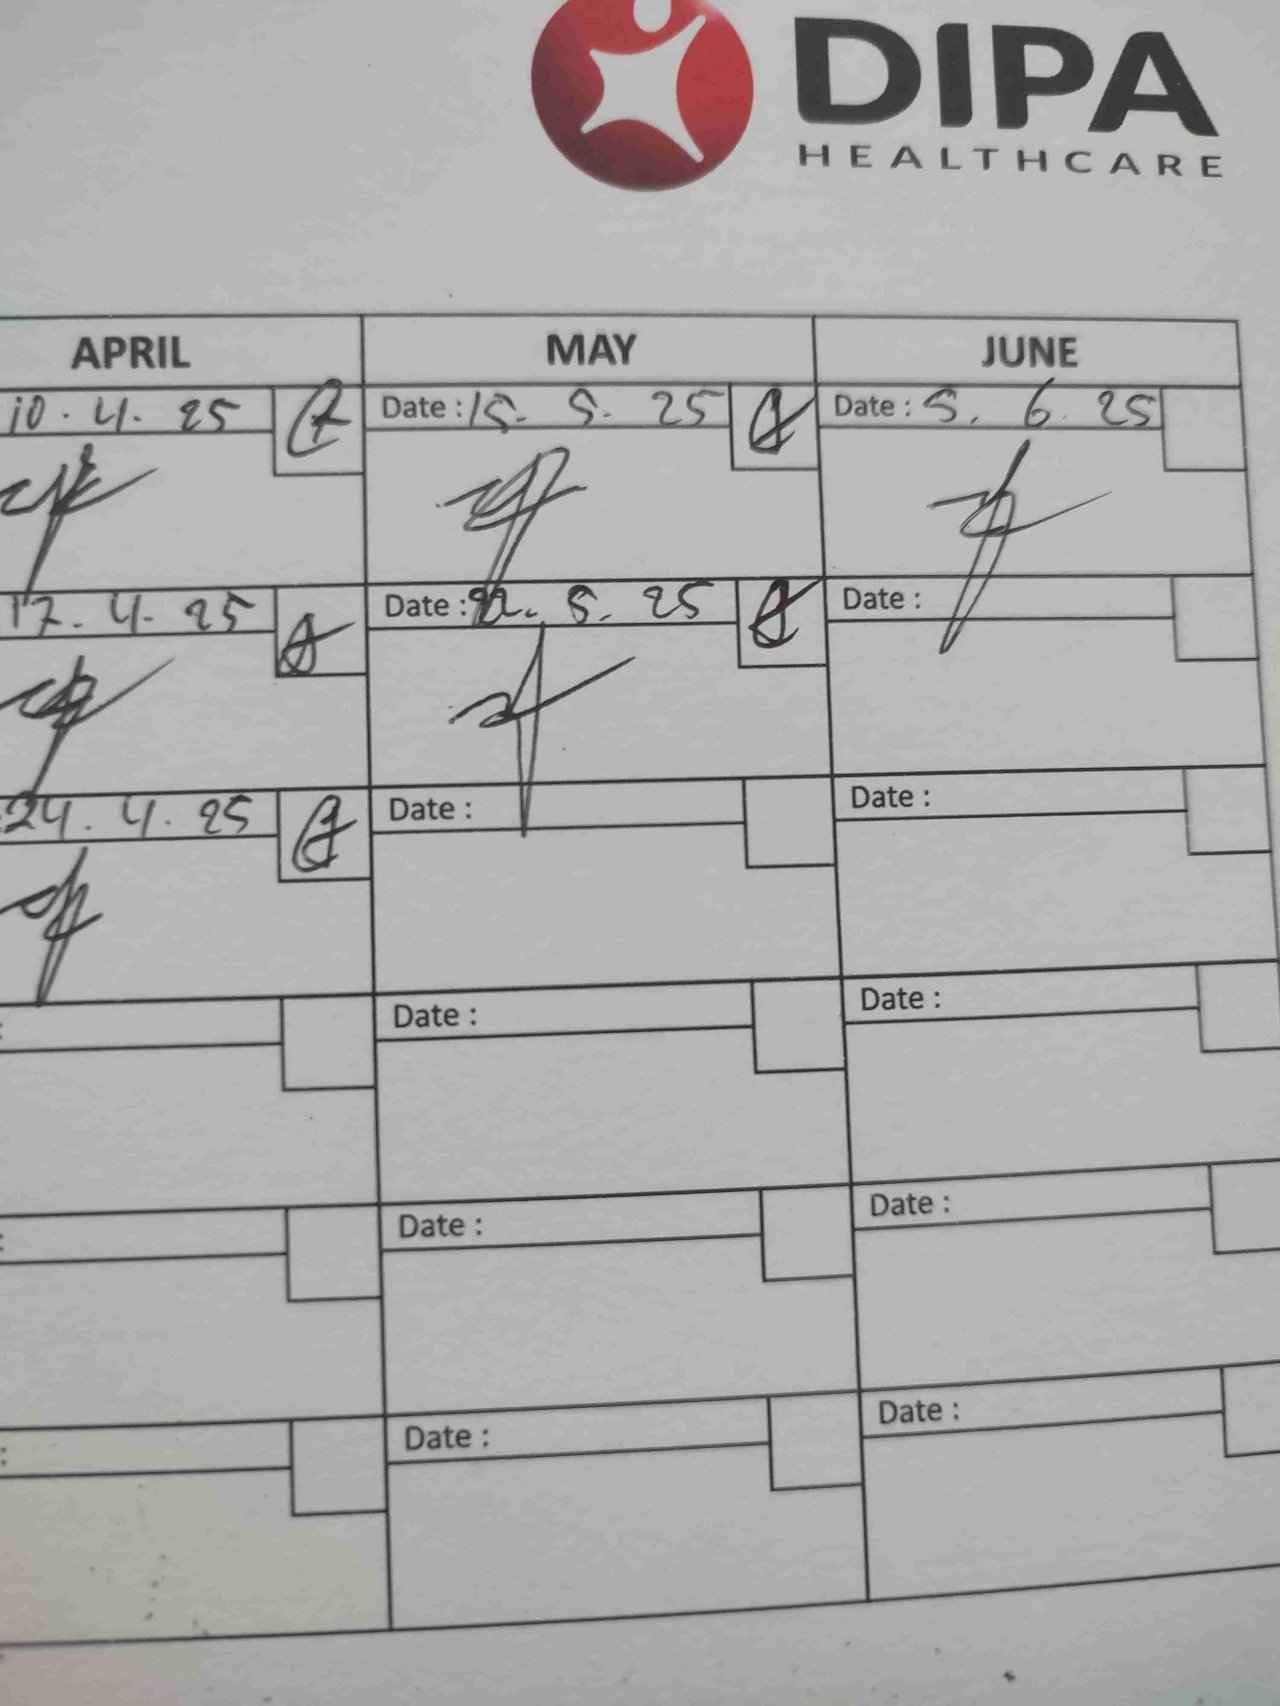 DIPA
HEALTHCARE
APRIL MAY JUNE
10.4.25 Date : 15.5.25 Date : 5.6.25
17.4.25 Date : 22.5.25 Date :
24.4.25 Date : Date :
: Date : Date :
: Date : Date :
: Date : Date :